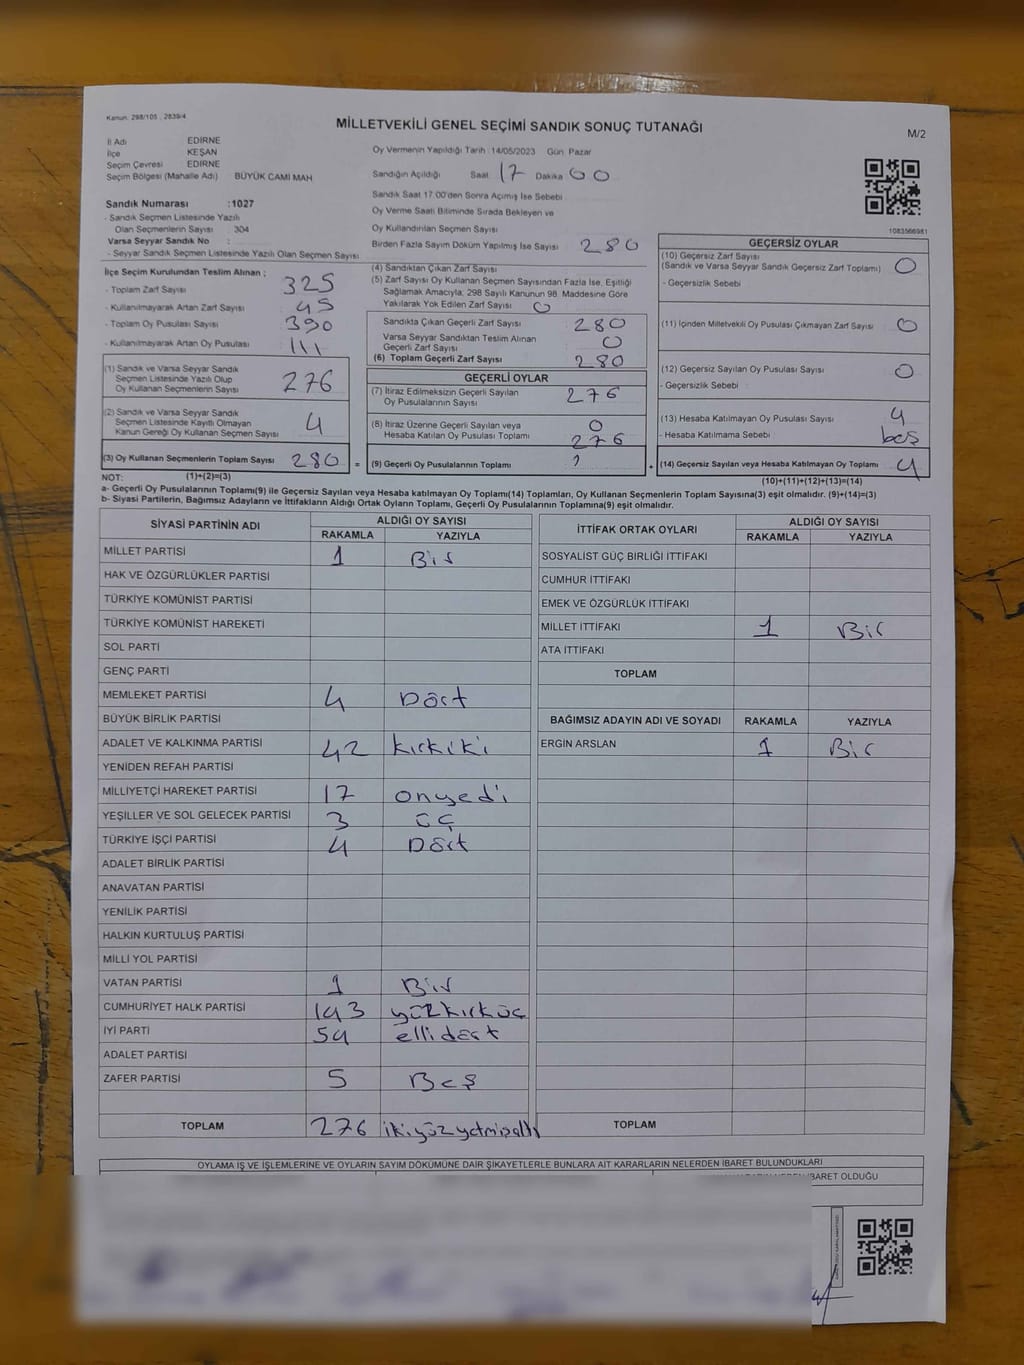 Kanun: 298/105 , 2839/4
MİLLETVEKİLİ GENEL SEÇİMİ SANDIK SONUÇ TUTANAĞI
M/2
İl Adı EDİRNE
İlçe KEŞAN
Seçim Çevresi EDİRNE
Seçim Bölgesi (Mahalle Adı) BÜYÜK CAMİ MAH
Sandık Numarası :1027
- Sandık Seçmen Listesinde Yazılı
Olan Seçmenlerin Sayısı : 304
Varsa Seyyar Sandık No :
- Seyyar Sandık Seçmen Listesinde Yazılı Olan Seçmen Sayısı
Oy Vermenin Yapıldığı Tarih :14/05/2023 Gün: Pazar
Sandığın Açıldığı Saat 17 Dakika 00
Sandık Saat 17.00'den Sonra Açımış İse Sebebi
Oy Verme Saati Bitiminde Sırada Bekleyen ve
Oy Kullandırılan Seçmen Sayısı
Birden Fazla Sayım Döküm Yapılmış İse Sayısı 280
1083566981
İlçe Seçim Kurulundan Teslim Alınan ;
- Toplam Zarf Sayısı 325
- Kullanılmayarak Artan Zarf Sayısı 45
- Toplam Oy Pusulası Sayısı 390
- Kullanılmayarak Artan Oy Pusulası 111
(1) Sandık ve Varsa Seyyar Sandık
Seçmen Listesinde Yazılı Olup
Oy Kullanan Seçmenlerin Sayısı 276
(2) Sandık ve Varsa Seyyar Sandık
Seçmen Listesinde Kayıtlı Olmayan
Kanun Gereği Oy Kullanan Seçmen Sayısı 4
(3) Oy Kullanan Seçmenlerin Toplam Sayısı 280 =
(1)+(2)=(3)
(4) Sandıktan Çıkan Zarf Sayısı
(5) Zarf Sayısı Oy Kullanan Seçmen Sayısından Fazla İse, Eşitliği
Sağlamak Amacıyla, 298 Sayılı Kanunun 98. Maddesine Göre
Yakılarak Yok Edilen Zarf Sayısı 0
Sandıkta Çıkan Geçerli Zarf Sayısı 280
Varsa Seyyar Sandıktan Teslim Alınan
Geçerli Zarf Sayısı 0
(6) Toplam Geçerli Zarf Sayısı 280
GEÇERLİ OYLAR
(7) İtiraz Edilmeksizin Geçerli Sayılan
Oy Pusulalarının Sayısı 276
(8) İtiraz Üzerine Geçerli Sayılan veya
Hesaba Katılan Oy Pusulası Toplamı 0
276
(9) Geçerli Oy Pusulalarının Toplamı
+
GEÇERSİZ OYLAR
(10) Geçersiz Zarf Sayısı
(Sandık ve Varsa Seyyar Sandık Geçersiz Zarf Toplamı) 0
- Geçersizlik Sebebi
(11) İçinden Milletvekili Oy Pusulası Çıkmayan Zarf Sayısı 0
(12) Geçersiz Sayılan Oy Pusulası Sayısı 0
- Geçersizlik Sebebi
(13) Hesaba Katılmayan Oy Pusulası Sayısı 4
- Hesaba Katılmama Sebebi boş
(14) Geçersiz Sayılan veya Hesaba Katılmayan Oy Toplamı 4
(10)+(11)+(12)+(13)=(14)
NOT:
a- Geçerli Oy Pusulalarının Toplamı(9) ile Geçersiz Sayılan veya Hesaba katılmayan Oy Toplamı(14) Toplamları, Oy Kullanan Seçmenlerin Toplam Sayısına(3) eşit olmalıdır. (9)+(14)=(3)
b- Siyasi Partilerin, Bağımsız Adayların ve İttifakların Aldığı Ortak Oyların Toplamı, Geçerli Oy Pusulalarının Toplamına(9) eşit olmalıdır.
SİYASİ PARTİNİN ADI ALDIĞI OY SAYISI
RAKAMLA YAZIYLA
MİLLET PARTİSİ 1 Bir
HAK VE ÖZGÜRLÜKLER PARTİSİ
TÜRKİYE KOMÜNİST PARTİSİ
TÜRKİYE KOMÜNİST HAREKETİ
SOL PARTİ
GENÇ PARTİ
MEMLEKET PARTİSİ 4 Dört
BÜYÜK BİRLİK PARTİSİ
ADALET VE KALKINMA PARTİSİ 42 kırkiki
YENİDEN REFAH PARTİSİ
MİLLİYETÇİ HAREKET PARTİSİ 17 onyedi
YEŞİLLER VE SOL GELECEK PARTİSİ 3 üç
TÜRKİYE İŞÇİ PARTİSİ 4 Dört
ADALET BİRLİK PARTİSİ
ANAVATAN PARTİSİ
YENİLİK PARTİSİ
HALKIN KURTULUŞ PARTİSİ
MİLLİ YOL PARTİSİ
VATAN PARTİSİ 1 Bir
CUMHURİYET HALK PARTİSİ 143 yüzkırküç
İYİ PARTİ 54 ellidört
ADALET PARTİSİ
ZAFER PARTİSİ 5 Beş
TOPLAM 276 ikiyüzyetmişaltı
İTTİFAK ORTAK OYLARI ALDIĞI OY SAYISI
RAKAMLA YAZIYLA
SOSYALİST GÜÇ BİRLİĞİ İTTİFAKI
CUMHUR İTTİFAKI
EMEK VE ÖZGÜRLÜK İTTİFAKI
MİLLET İTTİFAKI 1 Bir
ATA İTTİFAKI
TOPLAM
BAĞIMSIZ ADAYIN ADI VE SOYADI RAKAMLA YAZIYLA
ERGİN ARSLAN 1 Bir
TOPLAM
OYLAMA İŞ VE İŞLEMLERİNE VE OYLARIN SAYIM DÖKÜMÜNE DAİR ŞİKAYETLERLE BUNLARA AİT KARARLARIN NELERDEN İBARET BULUNDUKLARI
İBARET OLDUĞU